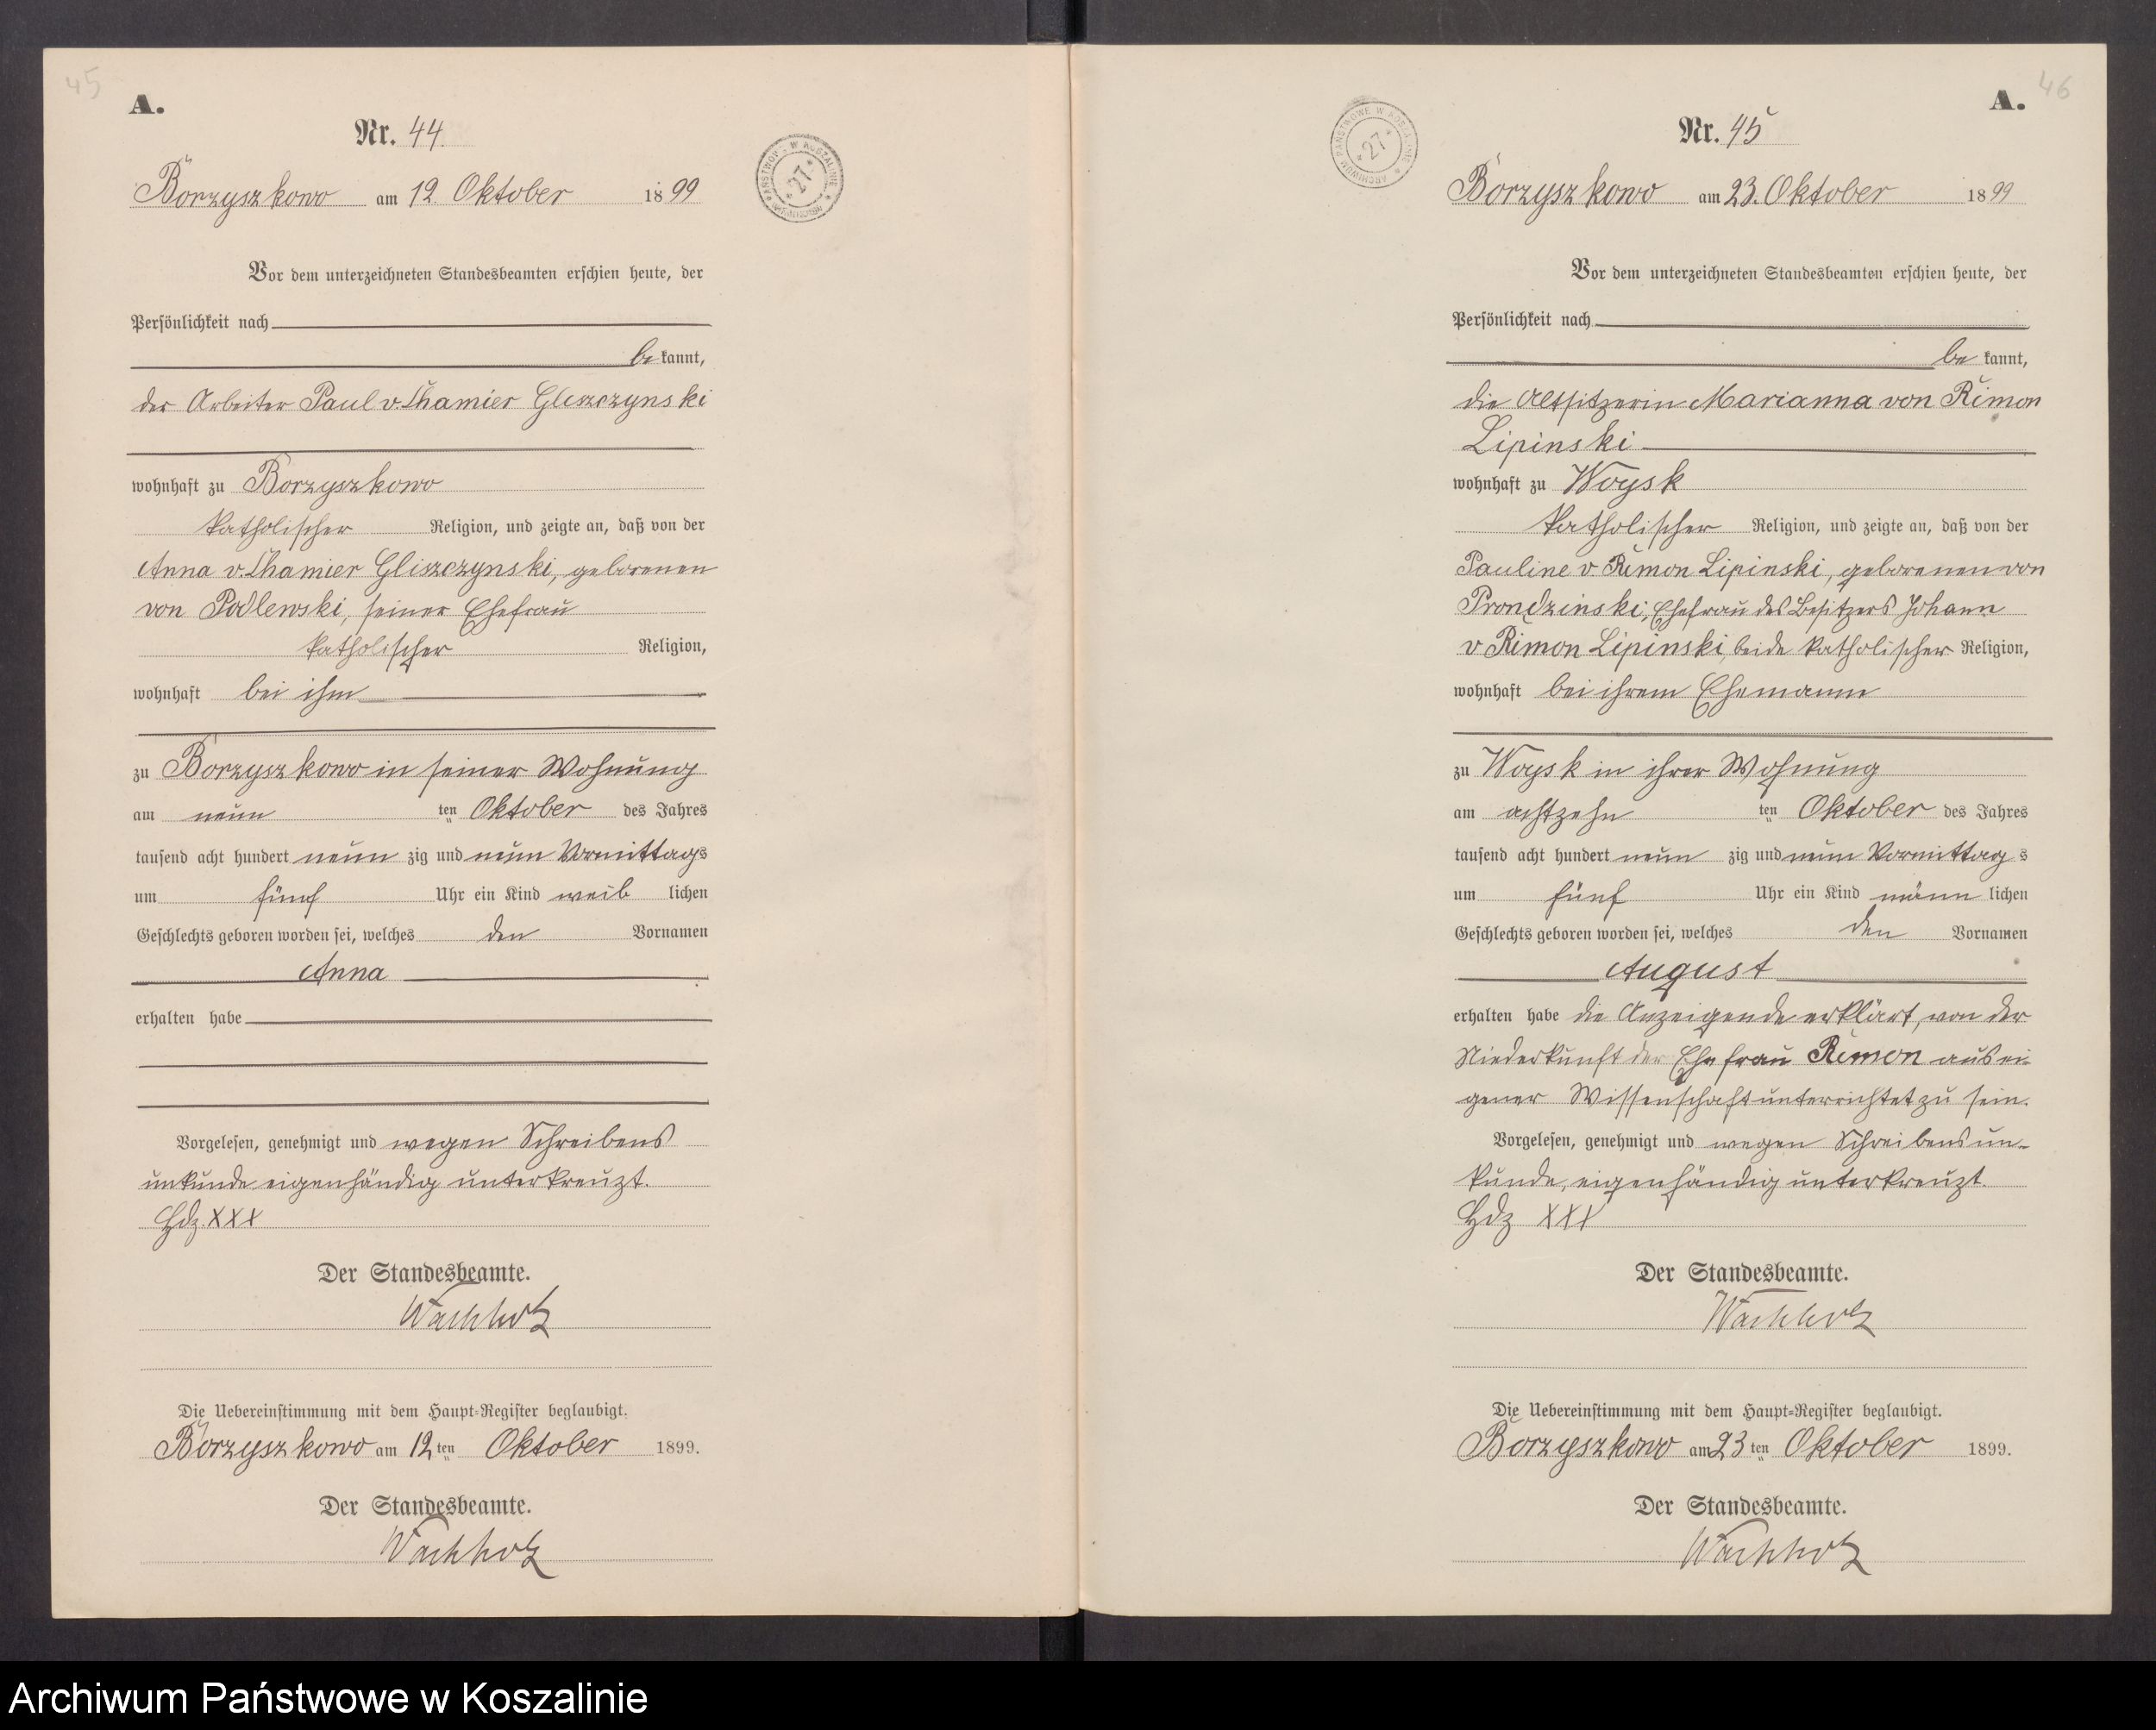 45
A.
Nr. 44.
Borzyszkowo am 12. Oktober 1899
Vor dem unterzeichneten Standesbeamten erschien heute, der
Persönlichkeit nach
be kannt,
der Arbeiter Paul v Chamier Gliszczynski
wohnhaft zu Borzyszkowo
katholischer Religion, und zeigte an, daß von der
Anna v. Chamier Gliszczynski, geborenen
von Podlewski, seiner Ehefrau
katholischer Religion,
wohnhaft bei ihm
zu Borzyszkowo in seiner Wohnung
am neun ten Oktober des Jahres
tausend acht hundert neun zig und neun Vormittags
um fünf Uhr ein Kind weib lichen
Geschlechts geboren worden sei, welches den Vornamen
Anna
erhalten habe
Vorgelesen, genehmigt und wegen Schreibens
unkunde eigenhändig unterkreuzt.
Hdz. XXX
Der Standesbeamte.
Wachholz
Die Uebereinstimmung mit dem Haupt-Register beglaubigt.
Borzyszkowo am 12 ten Oktober 1899.
Der Standesbeamte.
Wachholz
ARCHIWUM PAŃSTWOWE W KOSZALINIE
* 27 *
46
A.
Nr. 45
Borzyszkowo am 23. Oktober 1899
Vor dem unterzeichneten Standesbeamten erschien heute, der
Persönlichkeit nach
be kannt,
die Altsitzerin Marianna von Rimon
Lipinski
wohnhaft zu Woysk
katholischer Religion, und zeigte an, daß von der
Pauline v. Rimon Lipinski, geborenen von
Prondzinski, Ehefrau des Besitzers Johann
v Rimon Lipinski, beide katholischer Religion,
wohnhaft bei ihrem Ehemann
zu Woysk in ihrer Wohnung
am achtzehn ten Oktober des Jahres
tausend acht hundert neun zig und neun Vormittag s
um fünf Uhr ein Kind männ lichen
Geschlechts geboren worden sei, welches den Vornamen
August
erhalten habe die Anzeigende erklärt, von der
Niederkunft der Ehefrau Rimon aus ei-
gener Wissenschaft unterrichtet zu sein.
Vorgelesen, genehmigt und wegen Schreibens un-
kunde, eigenhändig unterkreuzt.
Hdz XXX
Der Standesbeamte.
Wachholz
Die Uebereinstimmung mit dem Haupt-Register beglaubigt.
Borzyszkowo am 23 ten Oktober 1899.
Der Standesbeamte.
Wachholz
ARCHIWUM PAŃSTWOWE W KOSZALINIE
* 27 *
Archiwum Państwowe w Koszalinie